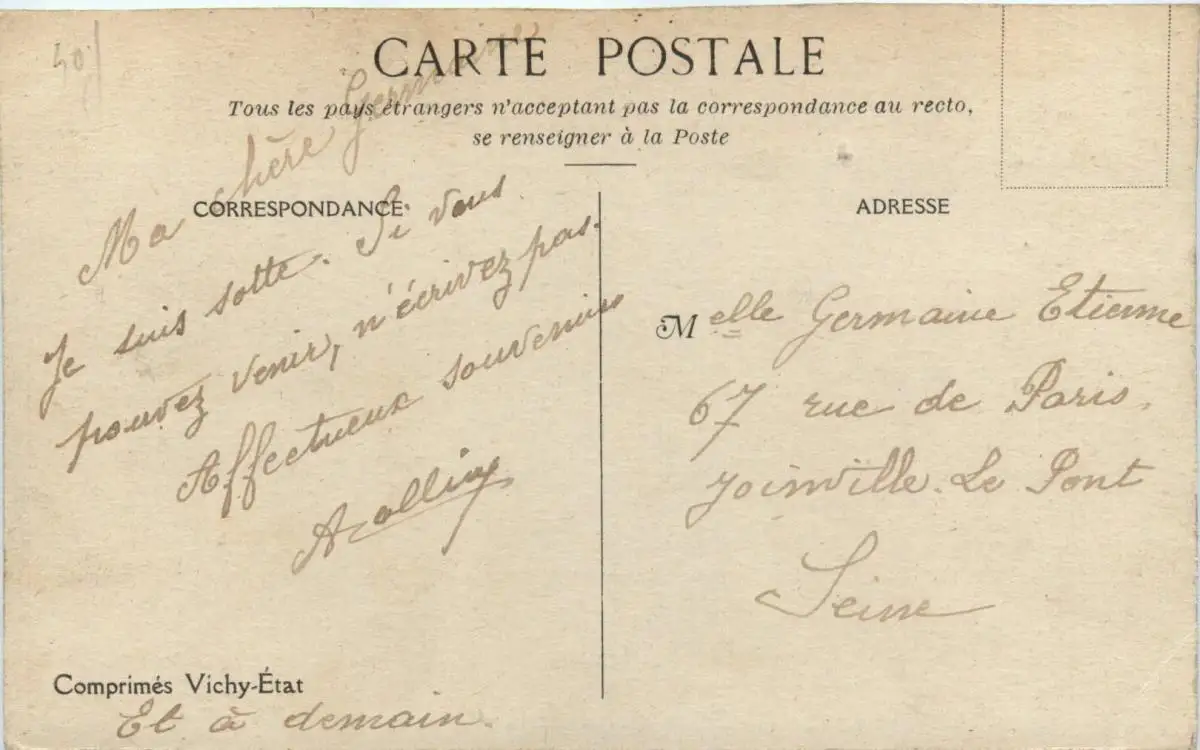 40
CARTE POSTALE
Tous les pays étrangers n'acceptent pas la correspondance au recto,
se renseigner à la Poste
CORRESPONDANCE
Ma chère Germaine
Je suis sotte. Si vous
pouvez venir, n'écrivez pas.
Affectueux souvenirs
Et à demain.
Comprimés Vichy-État
ADRESSE
Melle Germaine Etienne
67 rue de Paris.
Joinville-Le Pont
Seine